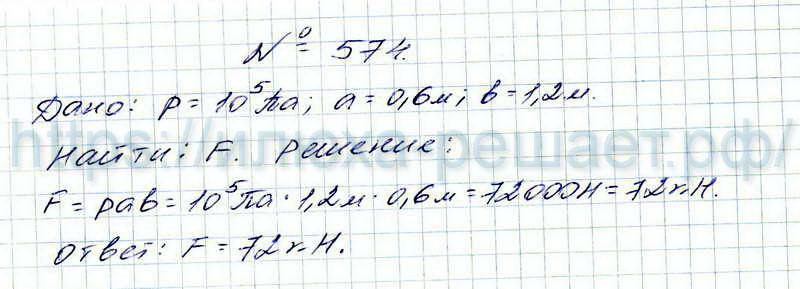 № 574.
Дано: p = 10⁵Па; a = 0,6м; b = 1,2м.
https://илюха-решает.рф/
Найти: F. Решение:
F = pab = 10⁵Па · 1,2м · 0,6м = 72000Н = 72кН.
Ответ: F = 72кН.